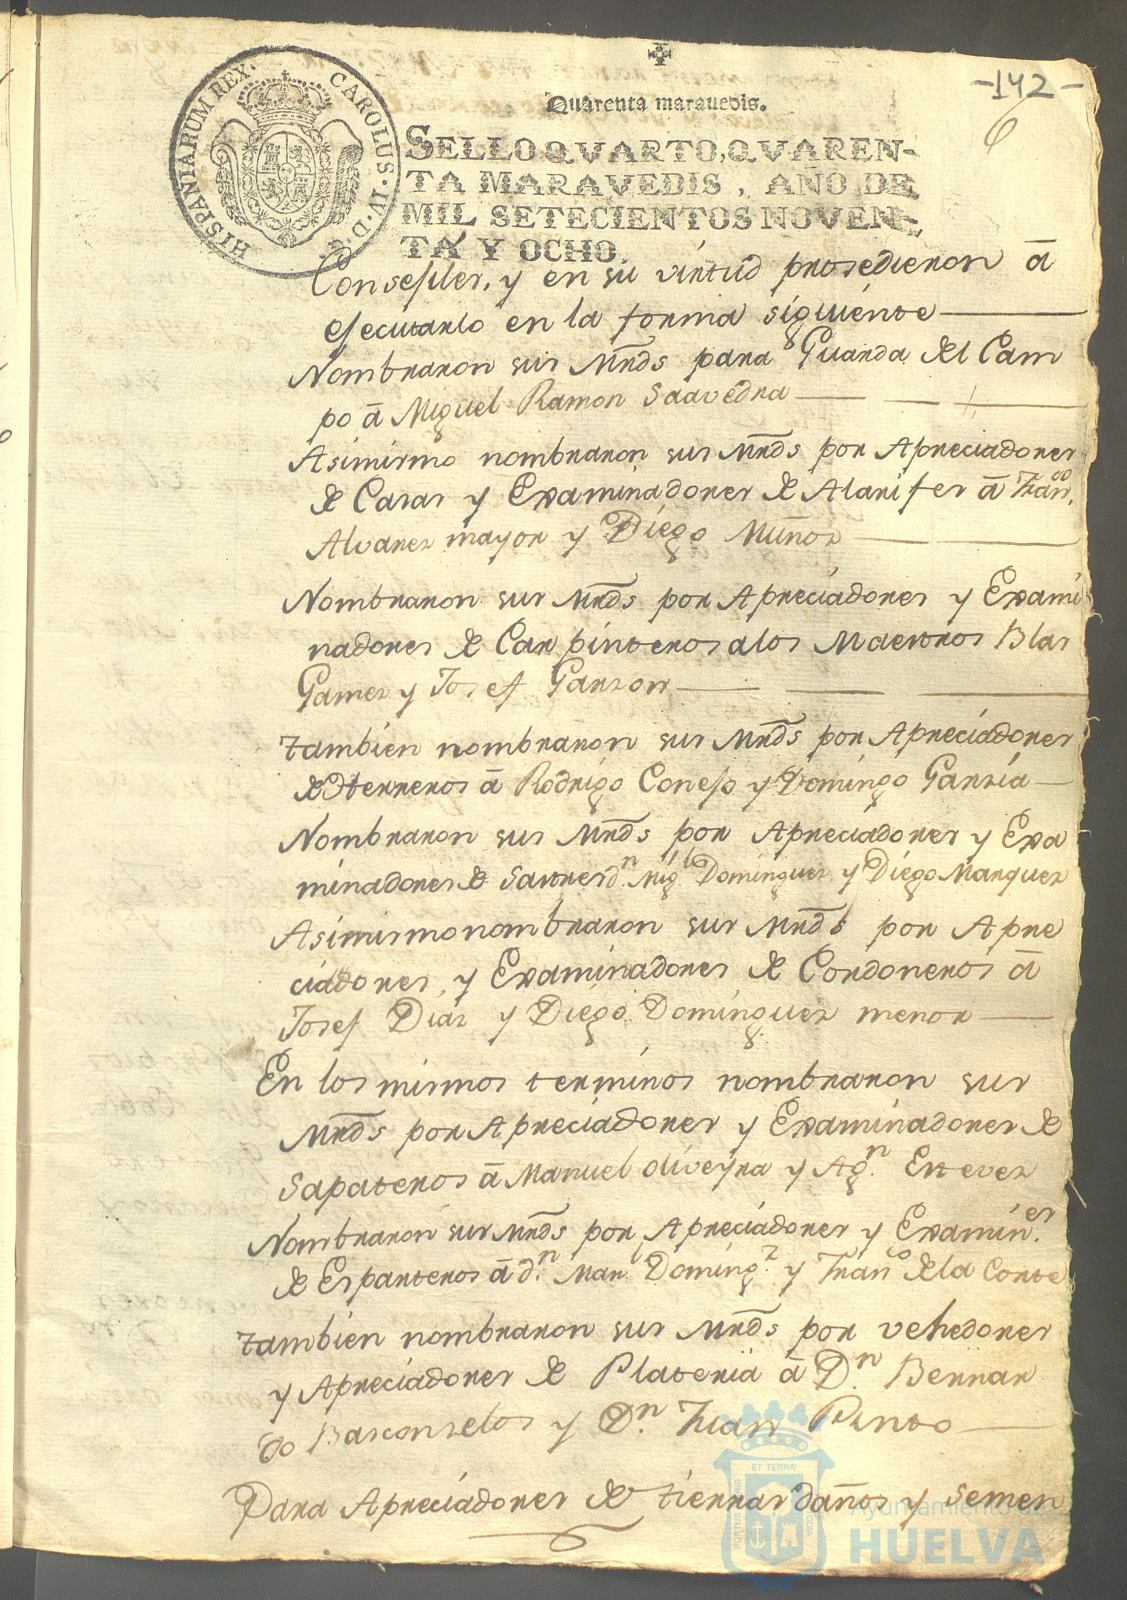 -142-
6
Quarenta maravedis.
HISPANIARUM REX. CAROLUS·IV·D·G·
SELLO QVARTO, QVAREN-
TA MARAVEDIS, AÑO DE
MIL SETECIENTOS NOVEN-
TA Y OCHO.
y en su virtud prosedieron ā
ejecutarlo en la forma siguiente
Nombraron sus Mrds para Guarda del Cam
po ā Miguel Ramon Saavedra
Asimismo nombraron sus Mrds por Apreciadores
de Casas y Examinadores de Alarifes ā Franco.
Alvares mayor y Diego Muños
Nombraron sus Mrds por Apreciadores y Exami
nadores de Carpinteros alos Maestros Blas
Gamez y Josef Garzon
tambien nombraron sus Mrds por Apreciadores
ā Rodrigo Conejo y Domingo Garzia
Nombraron sus Mrds por Apreciadores y Exa
minadores de Sastres dn. Migl. Dominguez y Diego Marquez
Asimismo nombraron sus Mrds por Apre
ciadores, y Examinadores de Cordoneros ā
Josef Diaz y Diego Dominguez menor
En los mismos terminos nombraron sus
Mrds por Apreciadores y Examinadores de
Sapateros ā Manuel oliveyra y Agn. Estevez
Nombraron sus Mrds por Apreciadores y Examin.es
de Esparteros ā dn. Manl Domingz. y Franco dela Corte
tambien nombraron sus Mrds por vehedores
y Apreciadores de Plateria ā Dn. Bernar
do Basconselos y Dn. Juan Pinto
Para Apreciadores de tierras daños y semen
ET TERRÆ
Ayuntamiento de
HUELVA